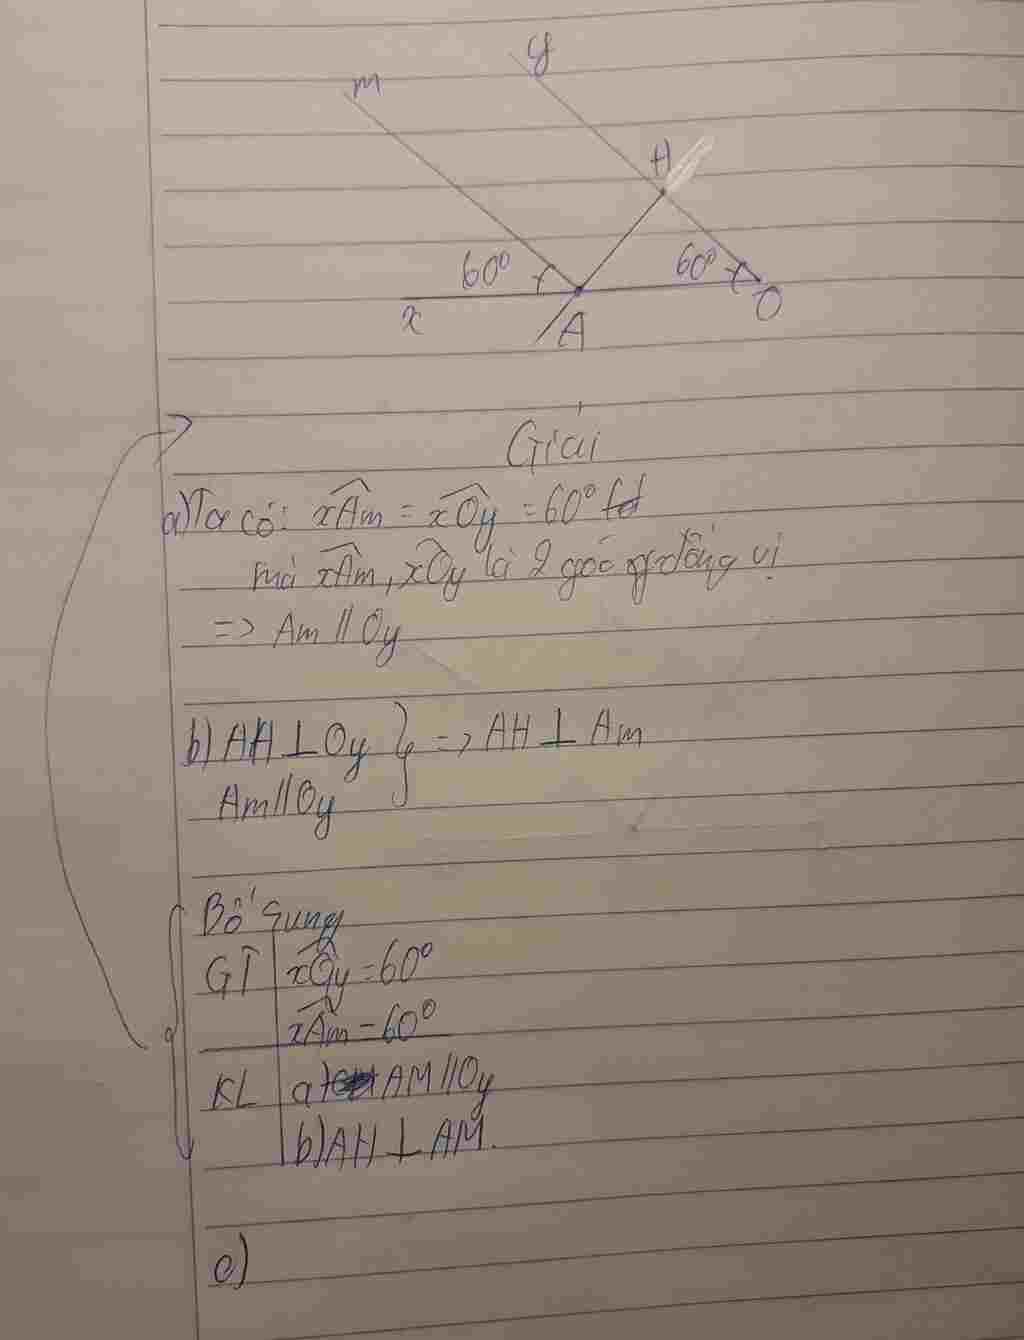 m
y
H
60°
60°
x
A
O
Giải
a) Ta có: xAm = xOy = 60°
mà xAm, xOy là 2 góc đồng vị
=> Am // Oy
b) AH ⊥ Oy } => AH ⊥ Am
Am // Oy
Bổ sung
GT | xOy = 60°
xAm = 60°
KL | a) AM // Oy
b) AH ⊥ AM.
c)